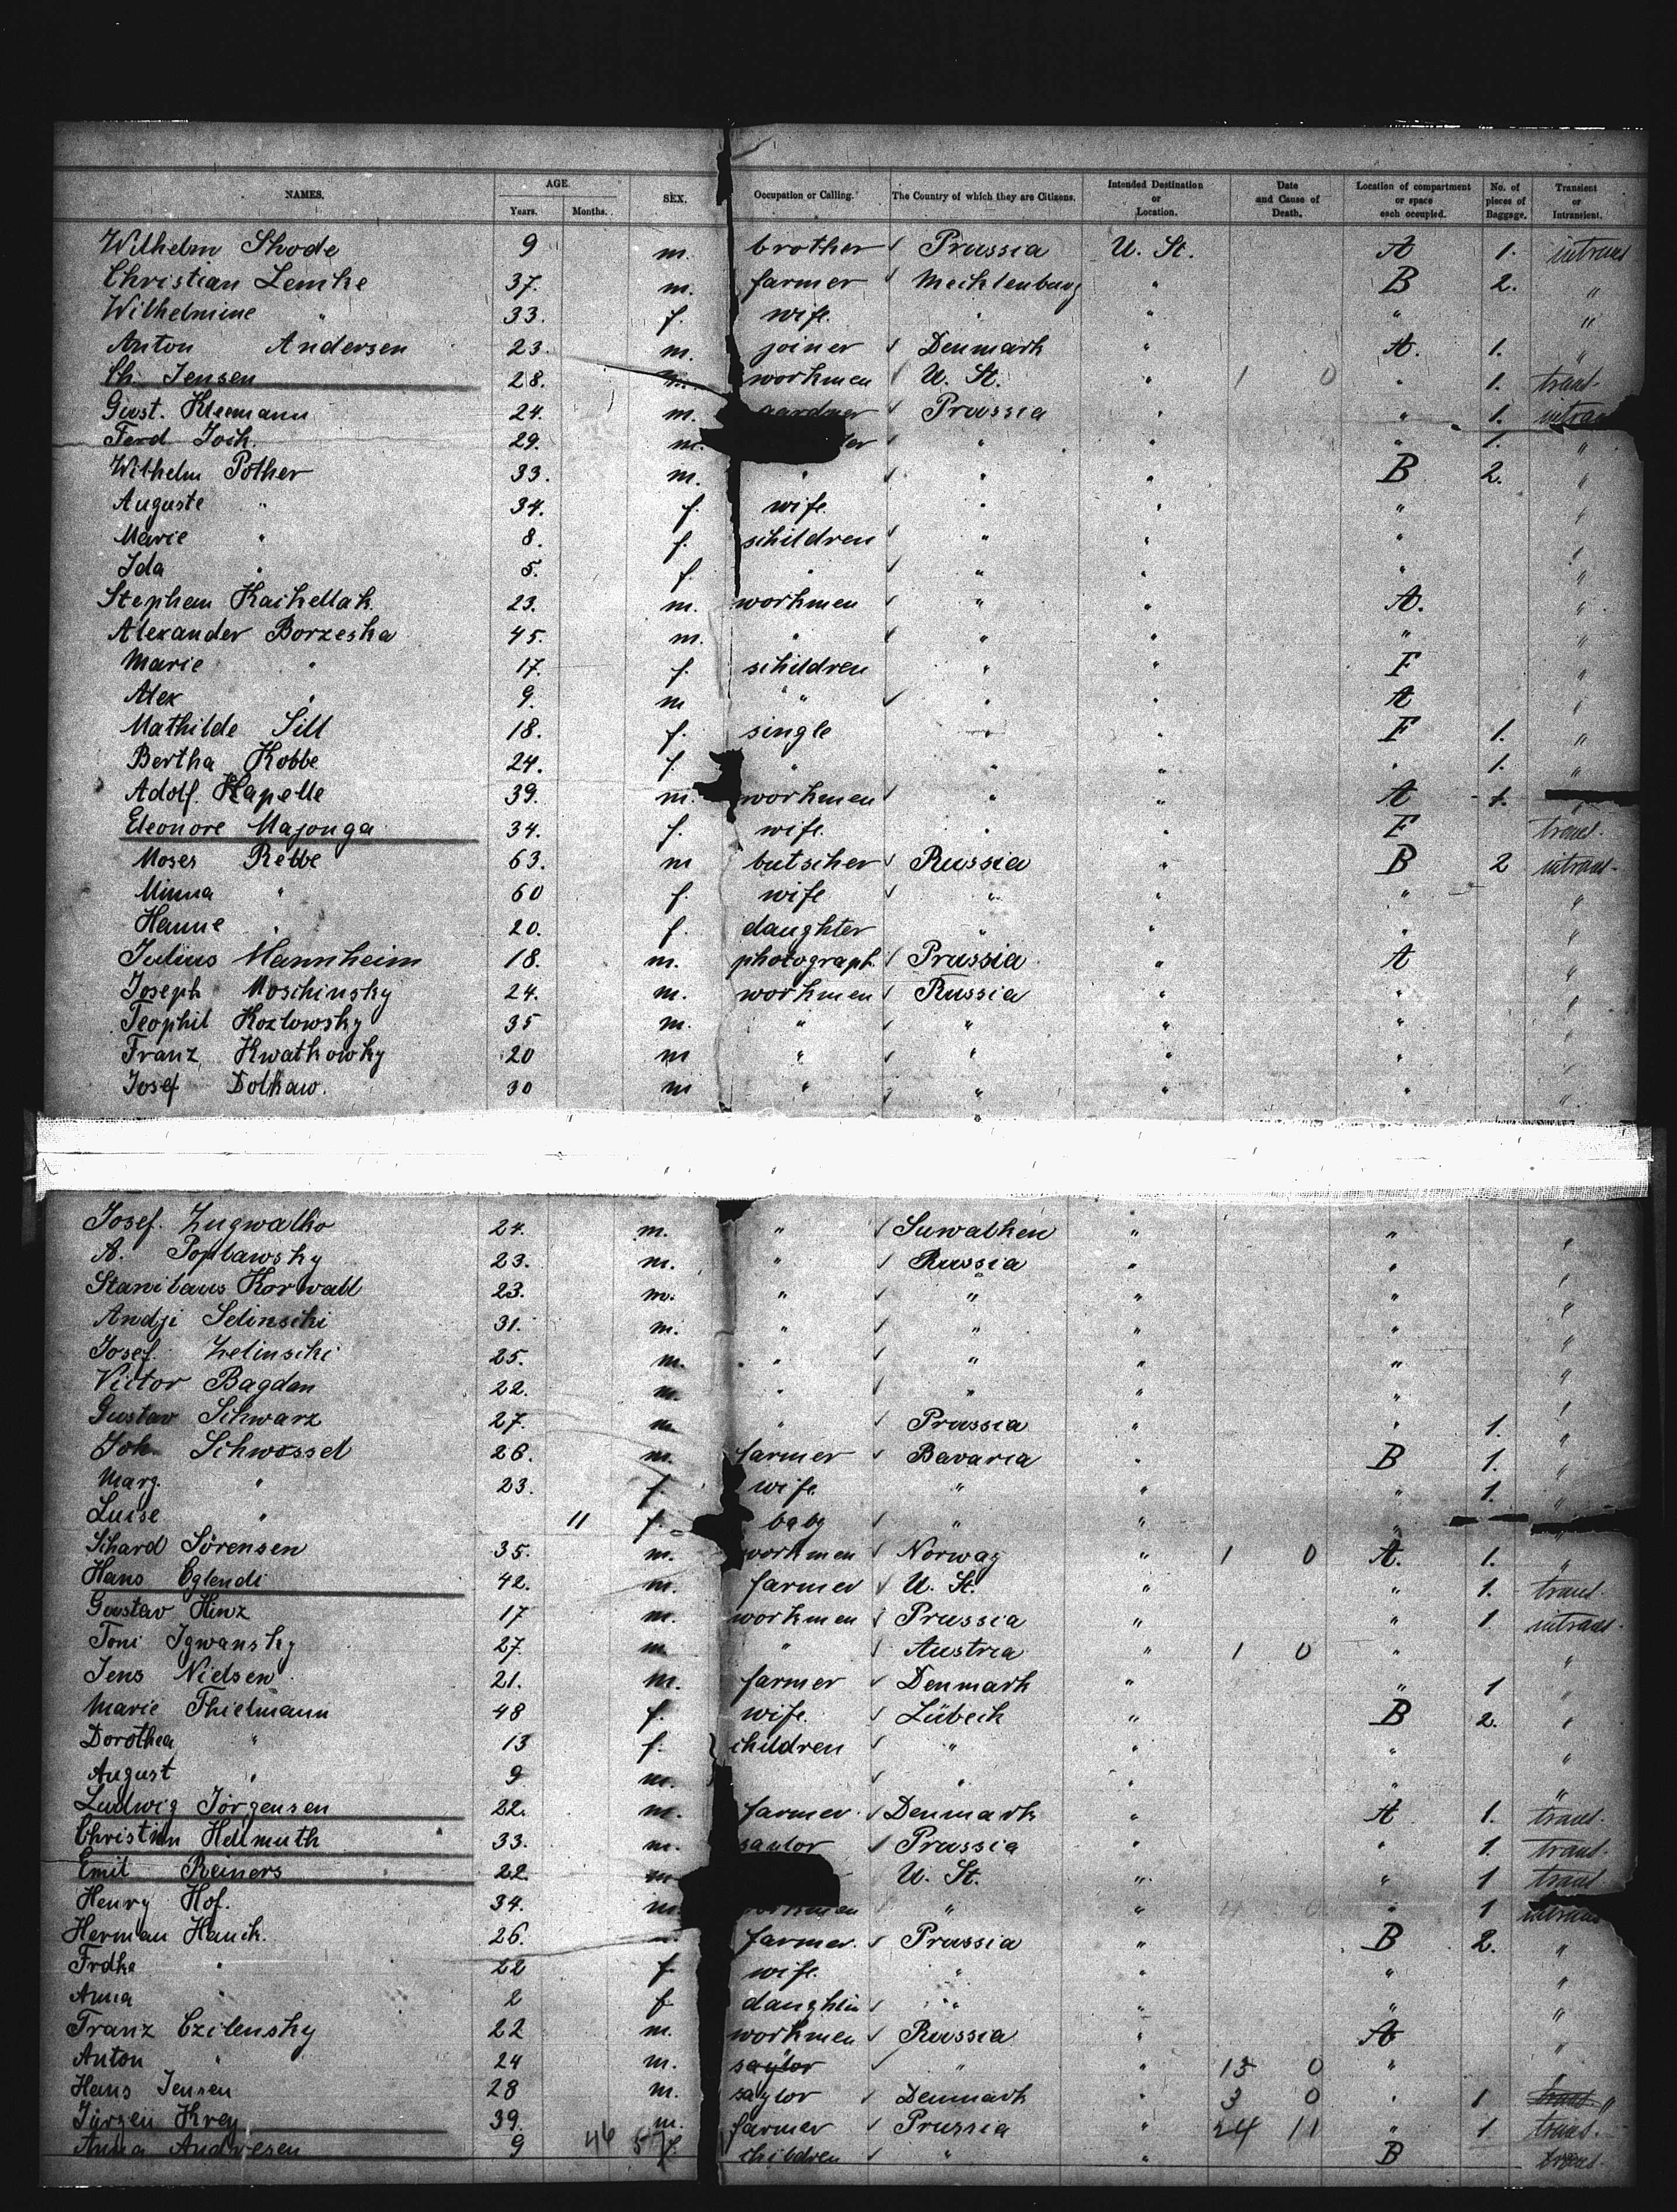 NAMES. AGE. Years. Months. SEX. Occupation or Calling. The Country of which they are Citizens. Intended Destination or Location. Date and Cause of Death. Location of compartment or space each occupied. No. of pieces of Baggage. Transient or Intransient.
Wilhelm Shode 9 m. brother ✓ Prussia U. St. A 1. intrans
Christian Lemke 37. m. farmer ✓ Mecklenburg " B 2. "
Wilhelmine " 33. f. wife. " " " "
Anton Andersen 23. m. joiner ✓ Denmark " A. 1. "
Ch. Jensen 28. m. workmen ✓ U. St. " 1 0 " 1. trans.
Gust. Kleemann 24. m. gardner Prussia " " 1. intrans
Ferd Joch. 29. m. ✓ " " " 1. "
Wilhelm Pother 33. m. " ✓ " " B 2. "
Auguste " 34. f. wife. " " " "
Marie " 8. f. schildren ✓ " " " "
Ida " 5. f. " ✓ " " " "
Stephan Kachellak 23. m. workmen ✓ " " A. "
Alexander Borzeska 45. m. " ✓ " " " "
Marie " 17. f. schildren " " F "
Alex " 9. m " ✓ " " A "
Mathilde Sill 18. f. single " " F 1. "
Bertha Kobbe 24. f. " " " " 1. "
Adolf. Kapelle 39. m. workmen ✓ " " A 1. "
Eleonore Majonga 34. f. wife. " " F trans.
Moses Rebbe 63. m butscher ✓ Russia " B 2 intrans.
Minna " 60 f. wife ✓ " " " "
Hanne " 20. f. daughter " " " "
Julius Mannheim 18. m. photograph. ✓ Prussia " A "
Joseph Moschinsky 24. m. workmen ✓ Russia " " "
Teophil Kozlowsky 35 m. " ✓ " " " "
Franz Kwatkowky 20 m " ✓ " " " "
Josef Dolkaw. 30 m " ✓ " " " "
Josef. Zugwalko 24. m. " ✓ Suwalken " " "
A. Poplawsky 23. m. " ✓ Russia " " "
Stanilaus Korwall 23. m. " ✓ " " " "
Andji Selinschi 31. m. " ✓ " " " "
Josef. Zelinschi 25. m. " ✓ " " " "
Victor Bagdan 22. m. " ✓ " " " "
Gustav Schwarz 27. m. " ✓ Prussia " " 1. "
Joh. Schwossel 26. m. farmer ✓ Bavaria " B 1. "
Marg. " 23. f. wife " " " 1. "
Luise " 11 f. baby ✓ " " " "
Sihard Sörensen 35. m. workmen ✓ Norway " 1 0 A. 1. "
Hans Eglendi 42. m. farmer ✓ U. St. " " 1. trans.
Gustav Hinz 17 m. workmen ✓ Prussia " " 1 intrans.
Toni Igwansky 27. m. " ✓ Austria " 1 0 " "
Jens Nielsen 21. m. farmer ✓ Denmark " " 1 "
Marie Thielmann 48 f. wife. ✓ Lübeck " B 2. "
Dorothea " 13 f. children ✓ " " " "
August " 9 m. ✓ " " " "
Ludwig Jörgensen 22. m. farmer. ✓ Denmark " A 1. trans.
Christian Hellmuth 33. m. saylor ✓ Prussia " " 1. trans.
Emil Reiners 22. m. U. St. " " 1 trans
Henry Hof. 34. m. workmen " " " 1 intrans
Herman Hauck. 26. farmer. ✓ Prussia " B 2. "
Frdke " 22 f. wife. " " " "
Anna " 2 f daughter ✓ " " " "
Franz Czilensky 22 m. workmen ✓ Russia " A "
Anton " 24 m. saylor ✓ " " 15 0 " "
Hans Jensen 28 m. saylor ✓ Denmark " 3 0 " 1 trans. "
Jürgen Krey 39. m. farmer ✓ Prussia " 24 11 " 1 trans.
Anna Andresen 9 46 5 f. children ✓ " " B trans.